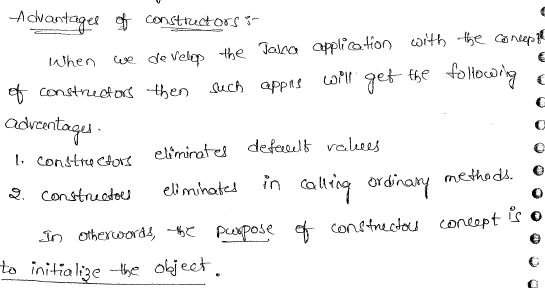 Advantages of constructors :-
When we develop the Java application with the concept
of constructors then such appns will get the following
advantages.
1. constructors eliminates default values
2. constructors eliminates in calling ordinary methods.
In otherwords, the purpose of constructors concept is
to initialize the object.